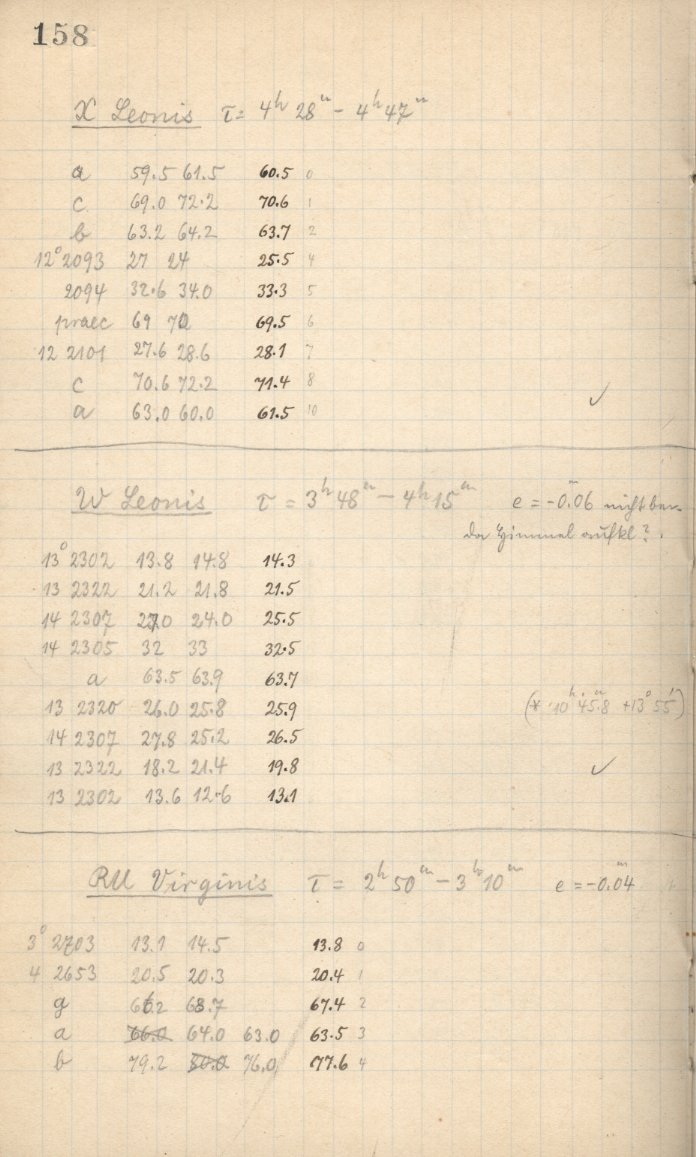 158
X Leonis τ = 4ʰ 28ᵐ – 4ʰ 47ᵐ
a 59.5 61.5 60.5 0
c 69.0 72.2 70.6 1
b 63.2 64.2 63.7 2
12° 2093 27 24 25.5 4
2094 32.6 34.0 33.3 5
praec 69 70 69.5 6
12 2101 27.6 28.6 28.1 7
c 70.6 72.2 71.4 8
a 63.0 60.0 61.5 10
✓
W Leonis τ = 3ʰ 48ᵐ – 4ʰ 15ᵐ e = -0.ᵐ06 nicht ber.
da Himmel aufkl?.
13° 2302 13.8 14.8 14.3
13 2322 21.2 21.8 21.5
14 2307 27.0 24.0 25.5
14 2305 32 33 32.5
a 63.5 63.9 63.7
13 2320 26.0 25.8 25.9 (* 10ʰ 45.ᵐ8 +13° 55')
14 2307 27.8 25.2 26.5
13 2322 18.2 21.4 19.8 ✓
13 2302 13.6 12.6 13.1
RU Virginis τ = 2ʰ 50ᵐ – 3ʰ 10ᵐ e = -0.ᵐ04
3° 2703 13.1 14.5 13.8 0
4 2653 20.5 20.3 20.4 1
g 66.2 68.7 67.4 2
a 66.0 64.0 63.0 63.5 3
b 79.2 80.0 76.0 77.6 4